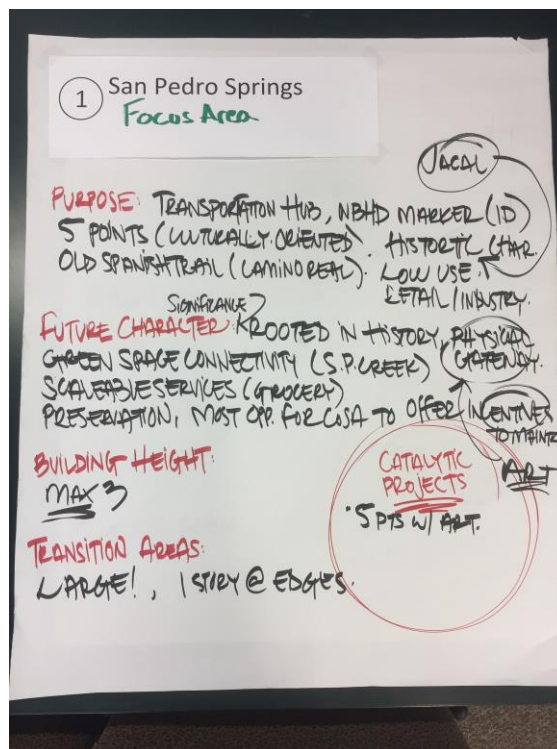 1 San Pedro Springs
Focus Area
JACAL
PURPOSE: TRANSPORTATION HUB, NBHD MARKER (ID)
5 POINTS (CULTURALLY ORIENTED). HISTORIC CHAR
OLD SPANISH TRAIL (CAMINO REAL). LOW USE
RETAIL / INDUSTRY.
SIGNIFICANCE?
FUTURE CHARACTER: ROOTED IN HISTORY, PHYSICAL
GREEN SPACE CONNECTIVITY (S.P. CREEK) GATEWAY.
SCALEABLE SERVICES (GROCERY)
PRESERVATION, MOST OPP. FOR COSA TO OFFER INCENTIVES
TO MAINTN
BUILDING HEIGHT:
MAX 3
CATALYTIC
PROJECTS
ART
• 5 PTS W/ ART.
TRANSITION AREAS:
LARGE!, 1 STORY @ EDGES.